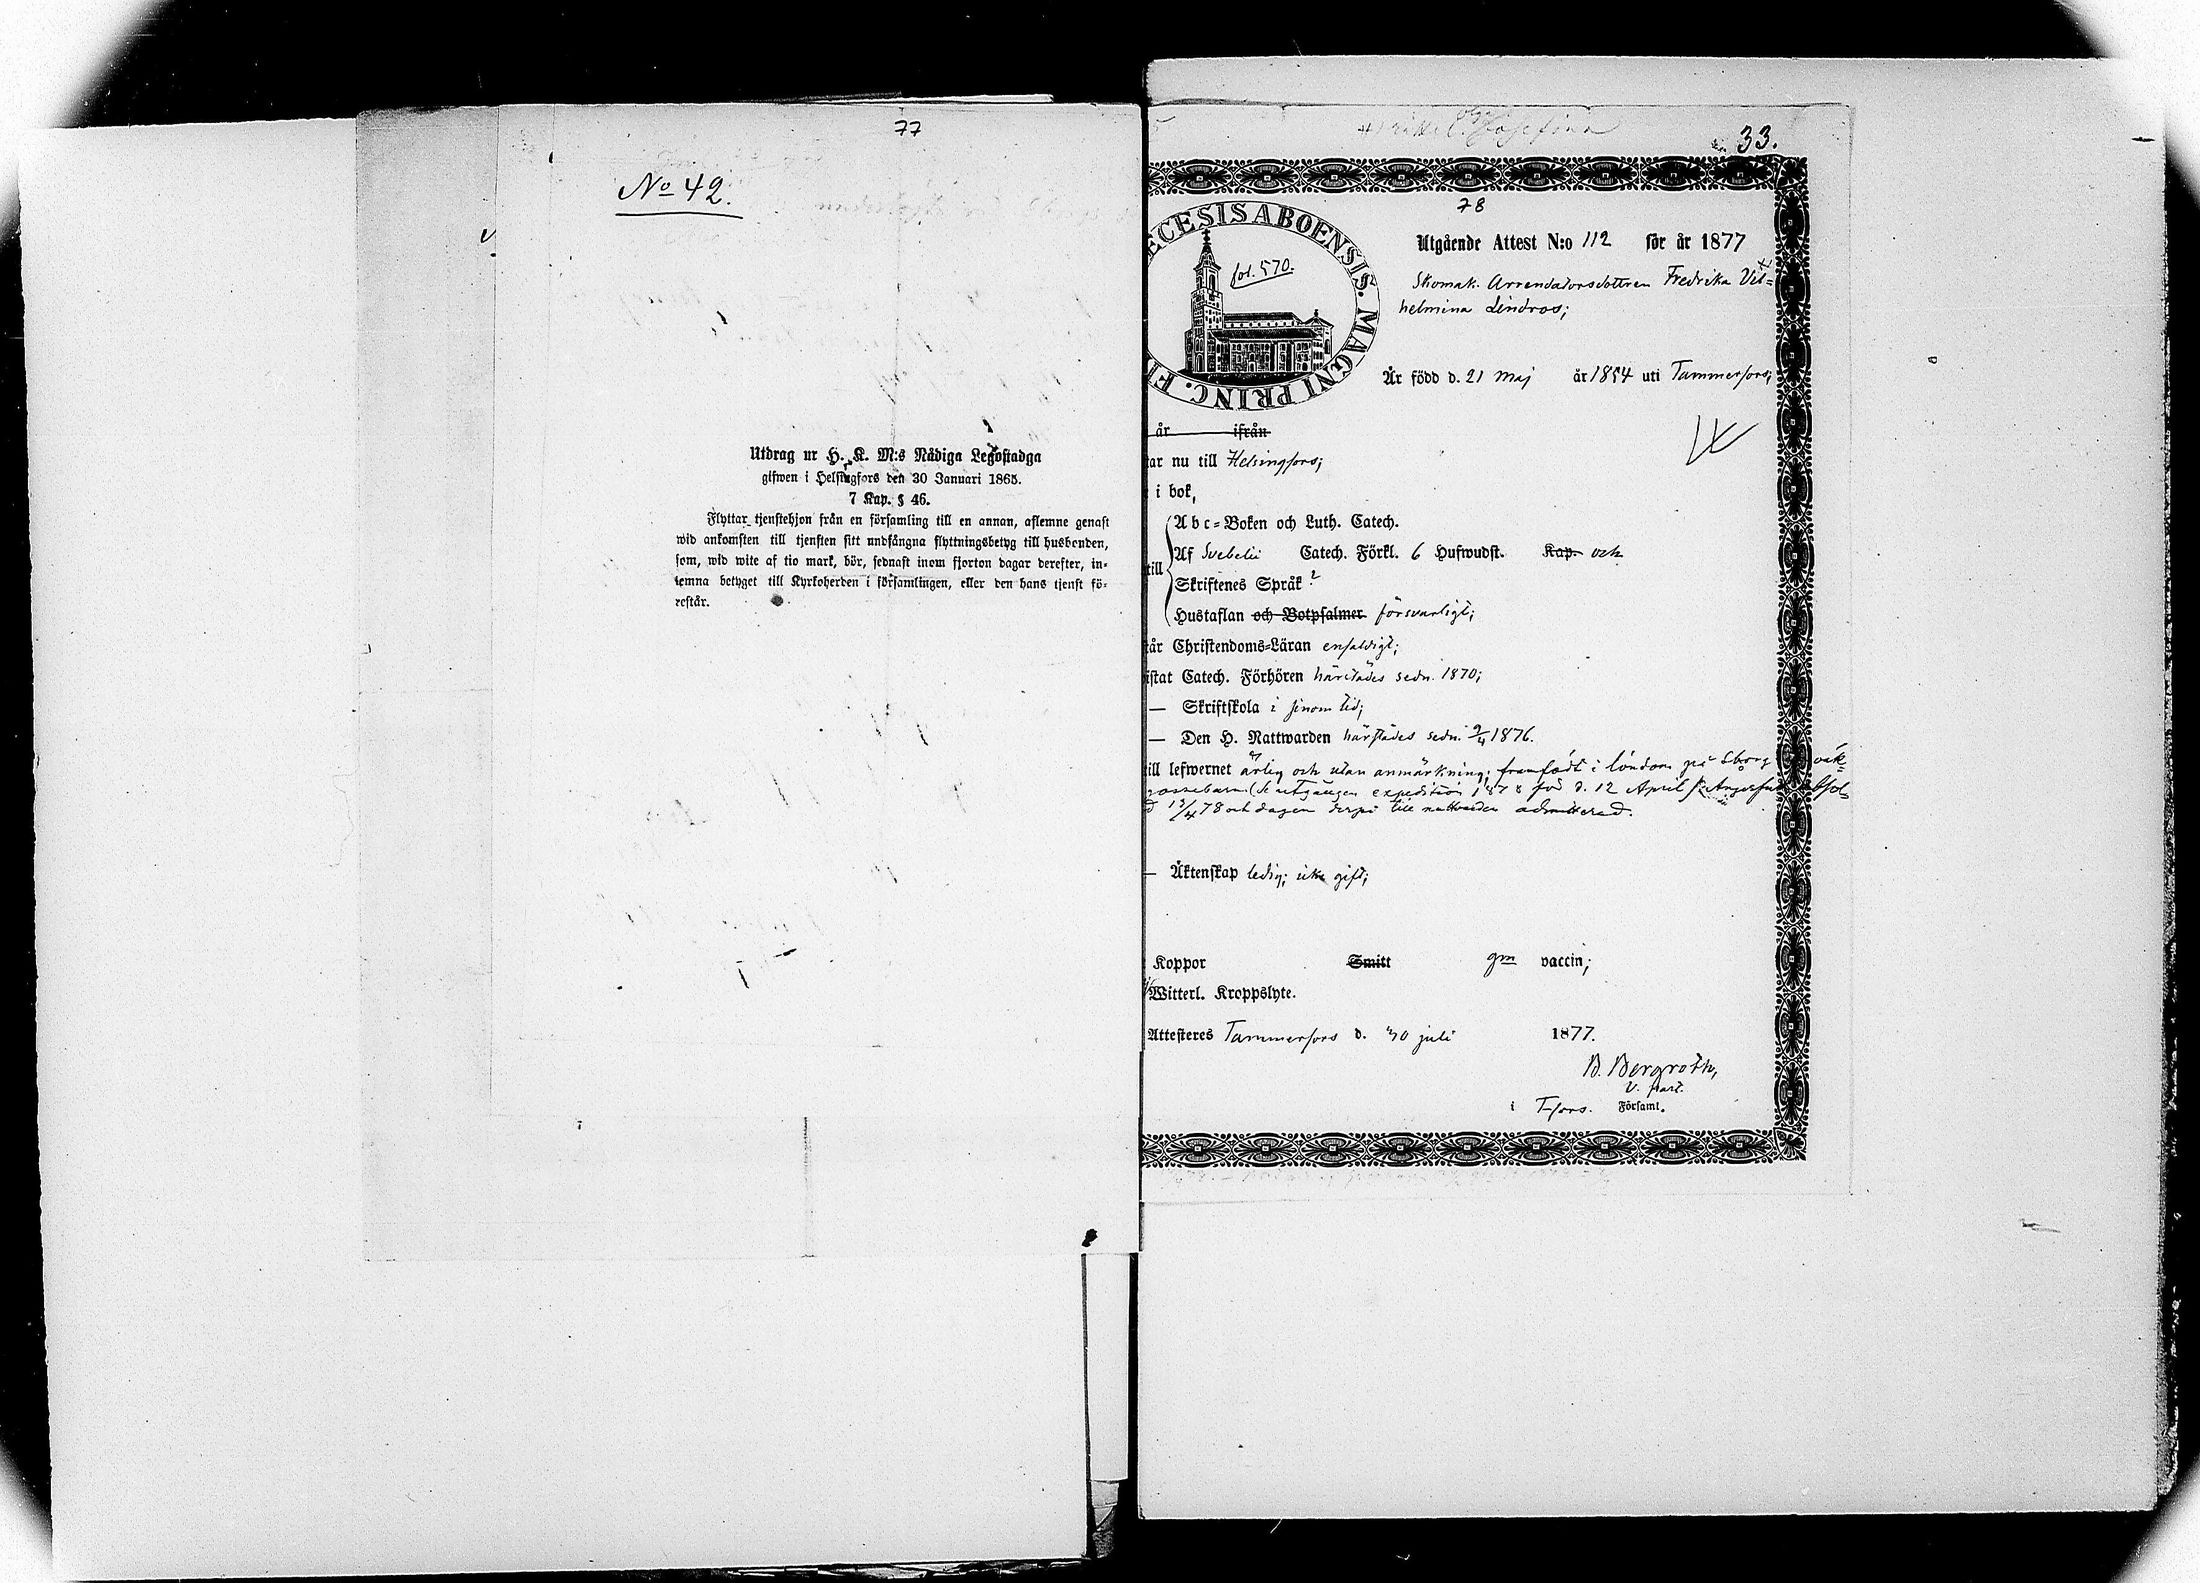 77
No 42.
Utdrag ur H. K. M:s Nådiga Legostadga
gifwen i Helsingfors den 30 Januari 1865.
7 Kap. § 46.
Flyttar tjenstehjon från en församling till en annan, aflemne genast
wid ankomsten till tjensten sitt undfångna flyttningsbetyg till husbonden,
som, wid wite af tio mark, bör, sednast inom fjorton dagar derefter, in-
lemna betyget till Kyrkoherden i församlingen, eller den hans tjenst fö-
restår.
Josefina
33.
78
ECESIS ABOENSIS. MAGNI PRINC. FI
fol. 570.
Utgående Attest N:o 112 för år 1877
Skomak. Arrendatorsdottren Fredrika Vil=
helmina Lindros;
Är född d. 21 Maj år 1854 uti Tammerfors;
år ifrån
ar nu till Helsingfors;
i bok,
till
Abc=Boken och Luth. Catech.
Af Svebelii Catech. Förkl. 6 Hufwudst. Kap. och
Skriftenes Språk ?
Hustaflan och Botpsalmer försvarligt;
tår Christendoms=Läran enfaldigt;
istat Catech. Förhören härstädes sedn. 1870;
— Skriftskola i sinom tid;
— Den H. Nattwarden härstädes sedn. 9/4 1876.
till lefwernet ärlig och utan anmärkning; framfödt i löndom
gossebarn (se utgången expedition 1878 för d. 12 April
13/4 78 och dagen derpå till nattvarden admitterad.
— Äktenskap ledig; icke gift;
Koppor Smitt gm vaccin;
Witterl. Kroppslyte.
Attesteres Tammerfors d. 30 juli 1877.
B. Bergroth,
v. past.
i T-fors. Församl.